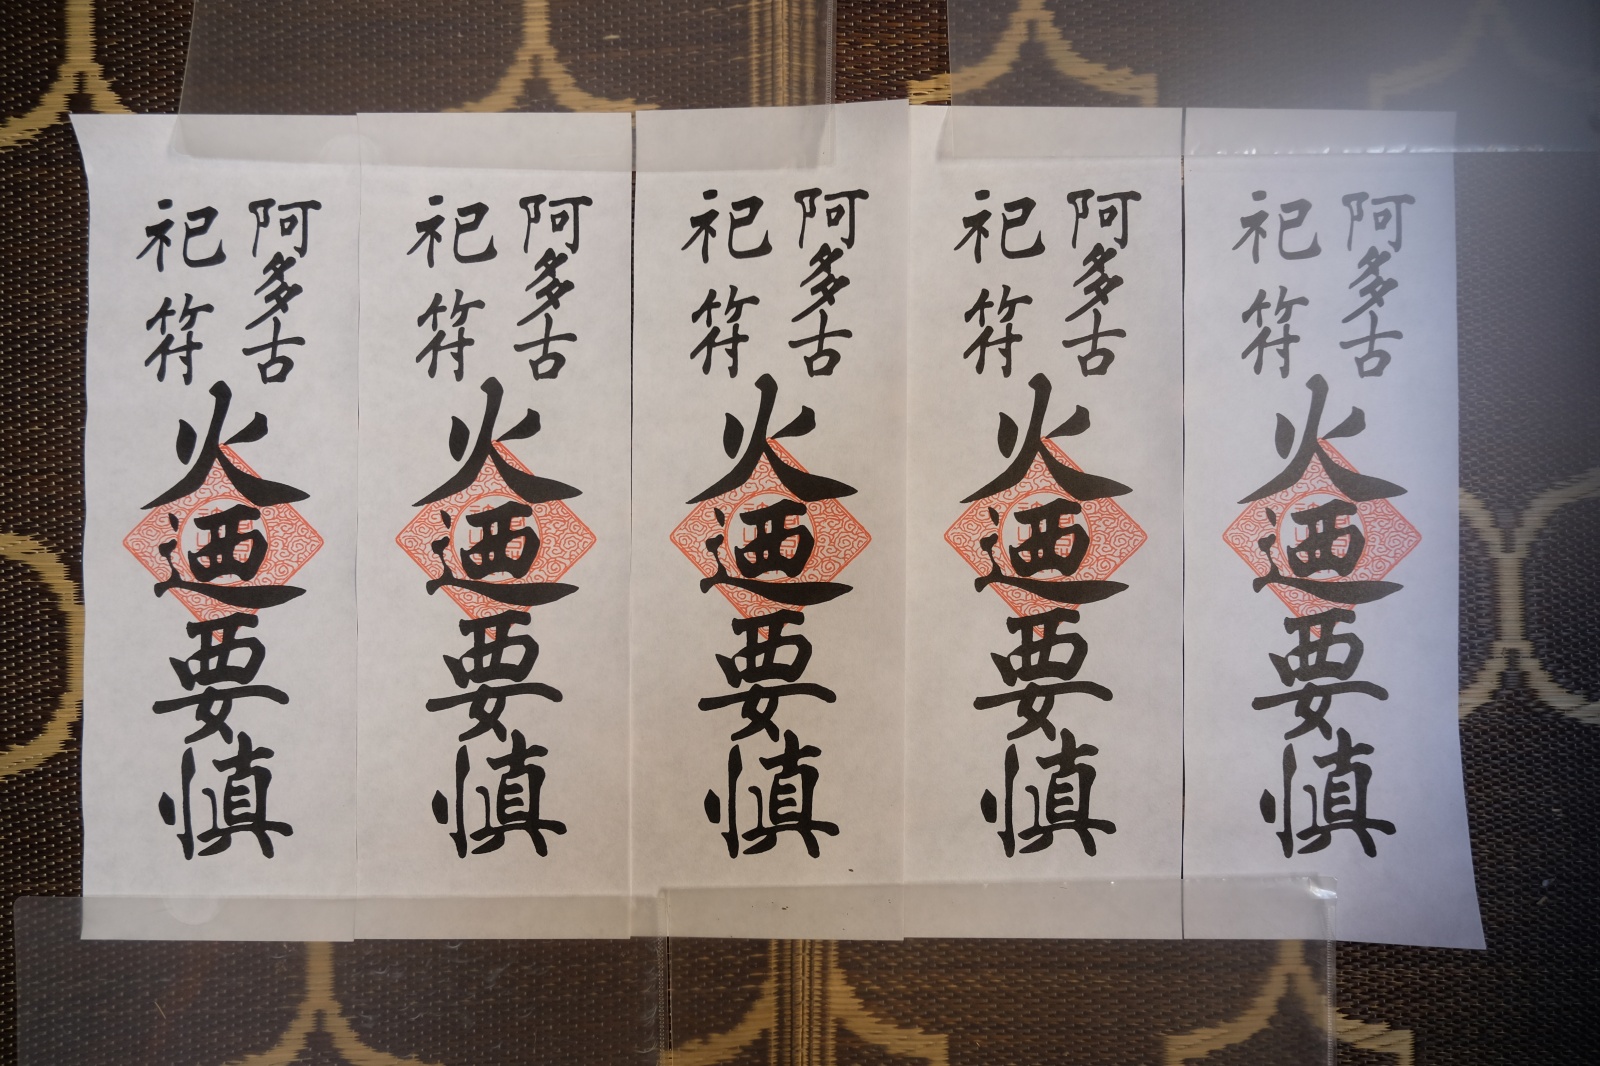 阿多古
祀符
火迺要慎
阿多古
祀符
火迺要慎
阿多古
祀符
火迺要慎
阿多古
祀符
火迺要慎
阿多古
祀符
火迺要慎